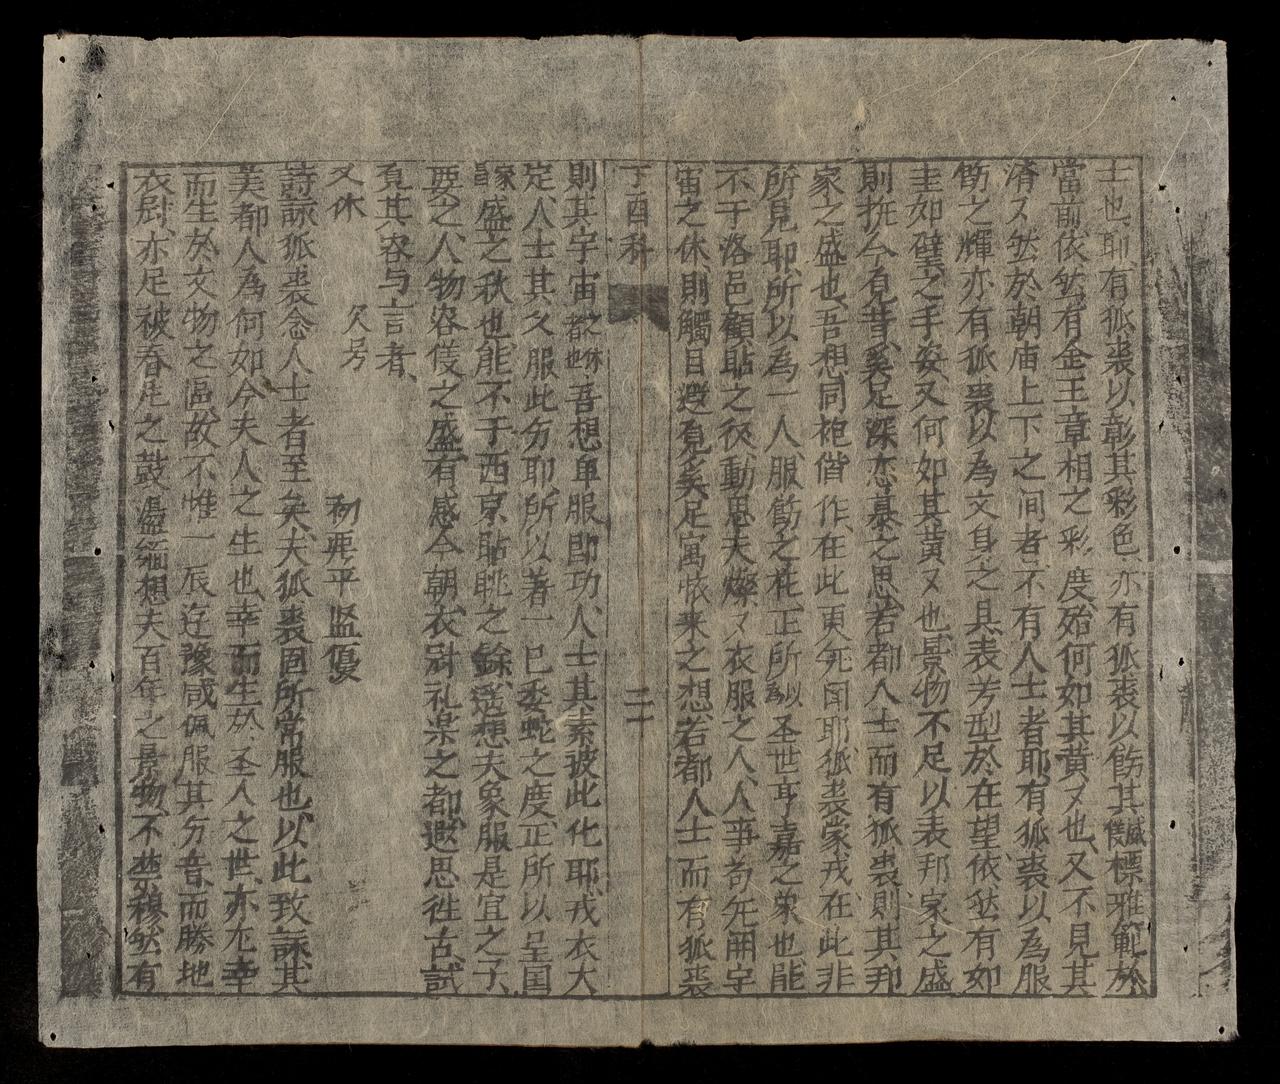 士也耶有狐裘以彰其彩色亦有狐裘以飭其儀標雅範於
當前依然有金王章相之彩度殆何如其黄〻也又不見其
濟〻然於朝庙上下之间者不有人士者耶有狐裘以為服
飭之輝亦有狐裘以為文身之具表芳型於在望依然有如
圭如璧之手姿又何如其黄〻也景物不足以表邦家之盛
則撫今育昔奚足深恋慕之思若都人士而有狐裘則其邦
家之盛也吾想同袍偕作在此更兊闻耶狐裘蒙戎在此非
所見耶所以為一人服飭之在正所以為圣世享嘉之栄也能
不于洛邑顧瞻之後動思夫燦〻衣服之人人事苟旡開宇
宙之休則觸目遐覓奚足寓恢来之想若都人士而有狐裘
丁酉科
二
則其宇宙之休都也吾想車服即功人士其素被此化耶戎衣大
定人士其久服此分耶所以著一已委蛇之度正所以呈国
家盛之秋也能不于西京瞻眺之餘遥想夫象服是宜之子
要之人物容儀之盛有感今朝衣冠礼楽之都遐思徃古試
覓其容与言者
又休 欠号 初再平监優
詩詠狐裘念人士者至矣夫狐裘固所常服也以此致詠其
美都人為何如今夫人之生也幸而生於圣人之世亦不幸
而生於文物之區故不惟一辰迓豫咸佩服其分音而勝地
衣尉亦足被春尾之鼓盪緬想夫百年之景物不禁穆然有